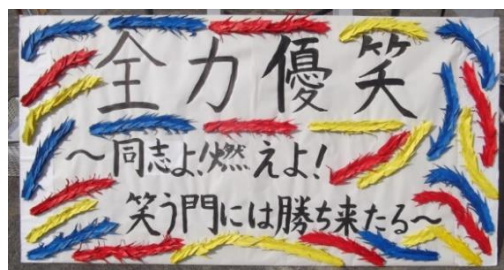 全力優笑
～同志よ!燃えよ!
笑う門には勝ち来たる～